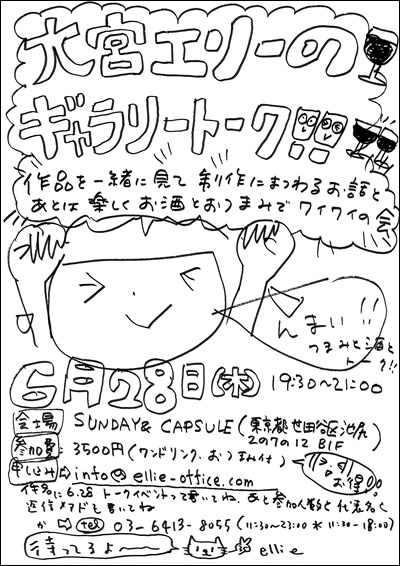 大宮エリーの
ギャラリートーク!!
作品を一緒に見て 制作にまつわるお話と
あとは楽しくお酒とおつまみでワイワイの会
んまい!!
つまみと酒と
トーク!!
6月28日(木) 19:30~21:00
会場 SUNDAY & CAPSULE (東京都世田谷区池尻
2の7の12 B1F)
参加費: 3500円(ワンドリンク、おつまみ付)
お得。
申し込み⇨info@ellie-office.com
件名に6.28 トークイベントって書いてね、あと参加人数と代表名と
返信メアドも書いてね
か⇨tel 03-6413-8055 (11:30~23:00 水 11:30-18:00)
待ってるよ~~
ellie